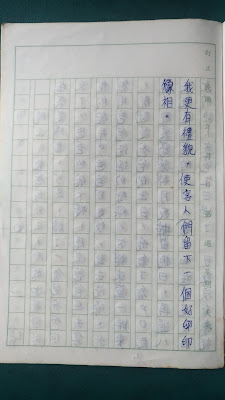 我更有禮貌。使客人們留下一個好印印
像相。